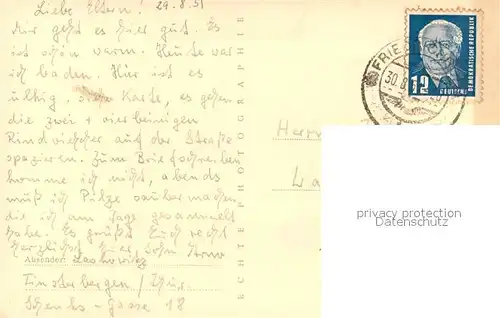 Liebe Eltern! 29.8.51
Mir geht es hier gut. Es
ist schön warm. Heute war
ich baden. Hier ist es
ulkig, siehe Karte, es gehen
die zwei + vierbeinigen
Rindviecher auf der Straße
spazieren. Zum Briefschreiben
komme ich nicht, abends
muß ich Pilze saubermachen
die ich am Tage gesammelt
habe. Es grüßt Euch recht
herzlichst Euer Sohn Arno
Absender:
Finsterbergen / Thür.
Schenks-Gasse 18
ECHTE PHOTOGRAPHIE
Herrn
La
FRIE
30.8.
12
DEUTSCHE
DEMOKRATISCHE REPUBLIK
privacy protection
Datenschutz